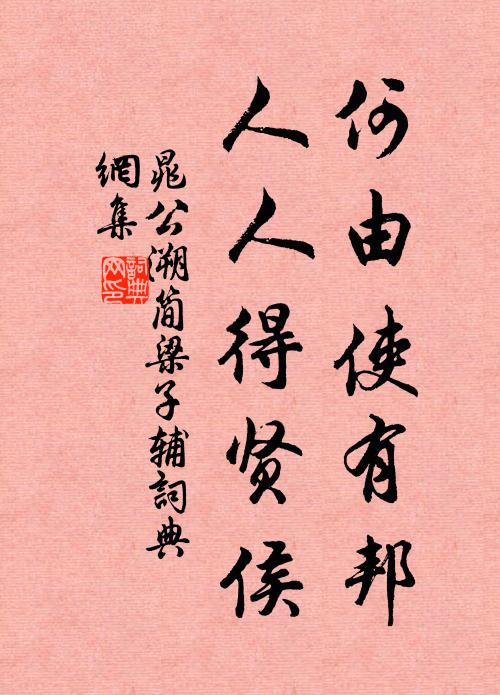 何由使有邦
人人得贤侯
晁公溯简梁子辅詞典
網集
詞典网印